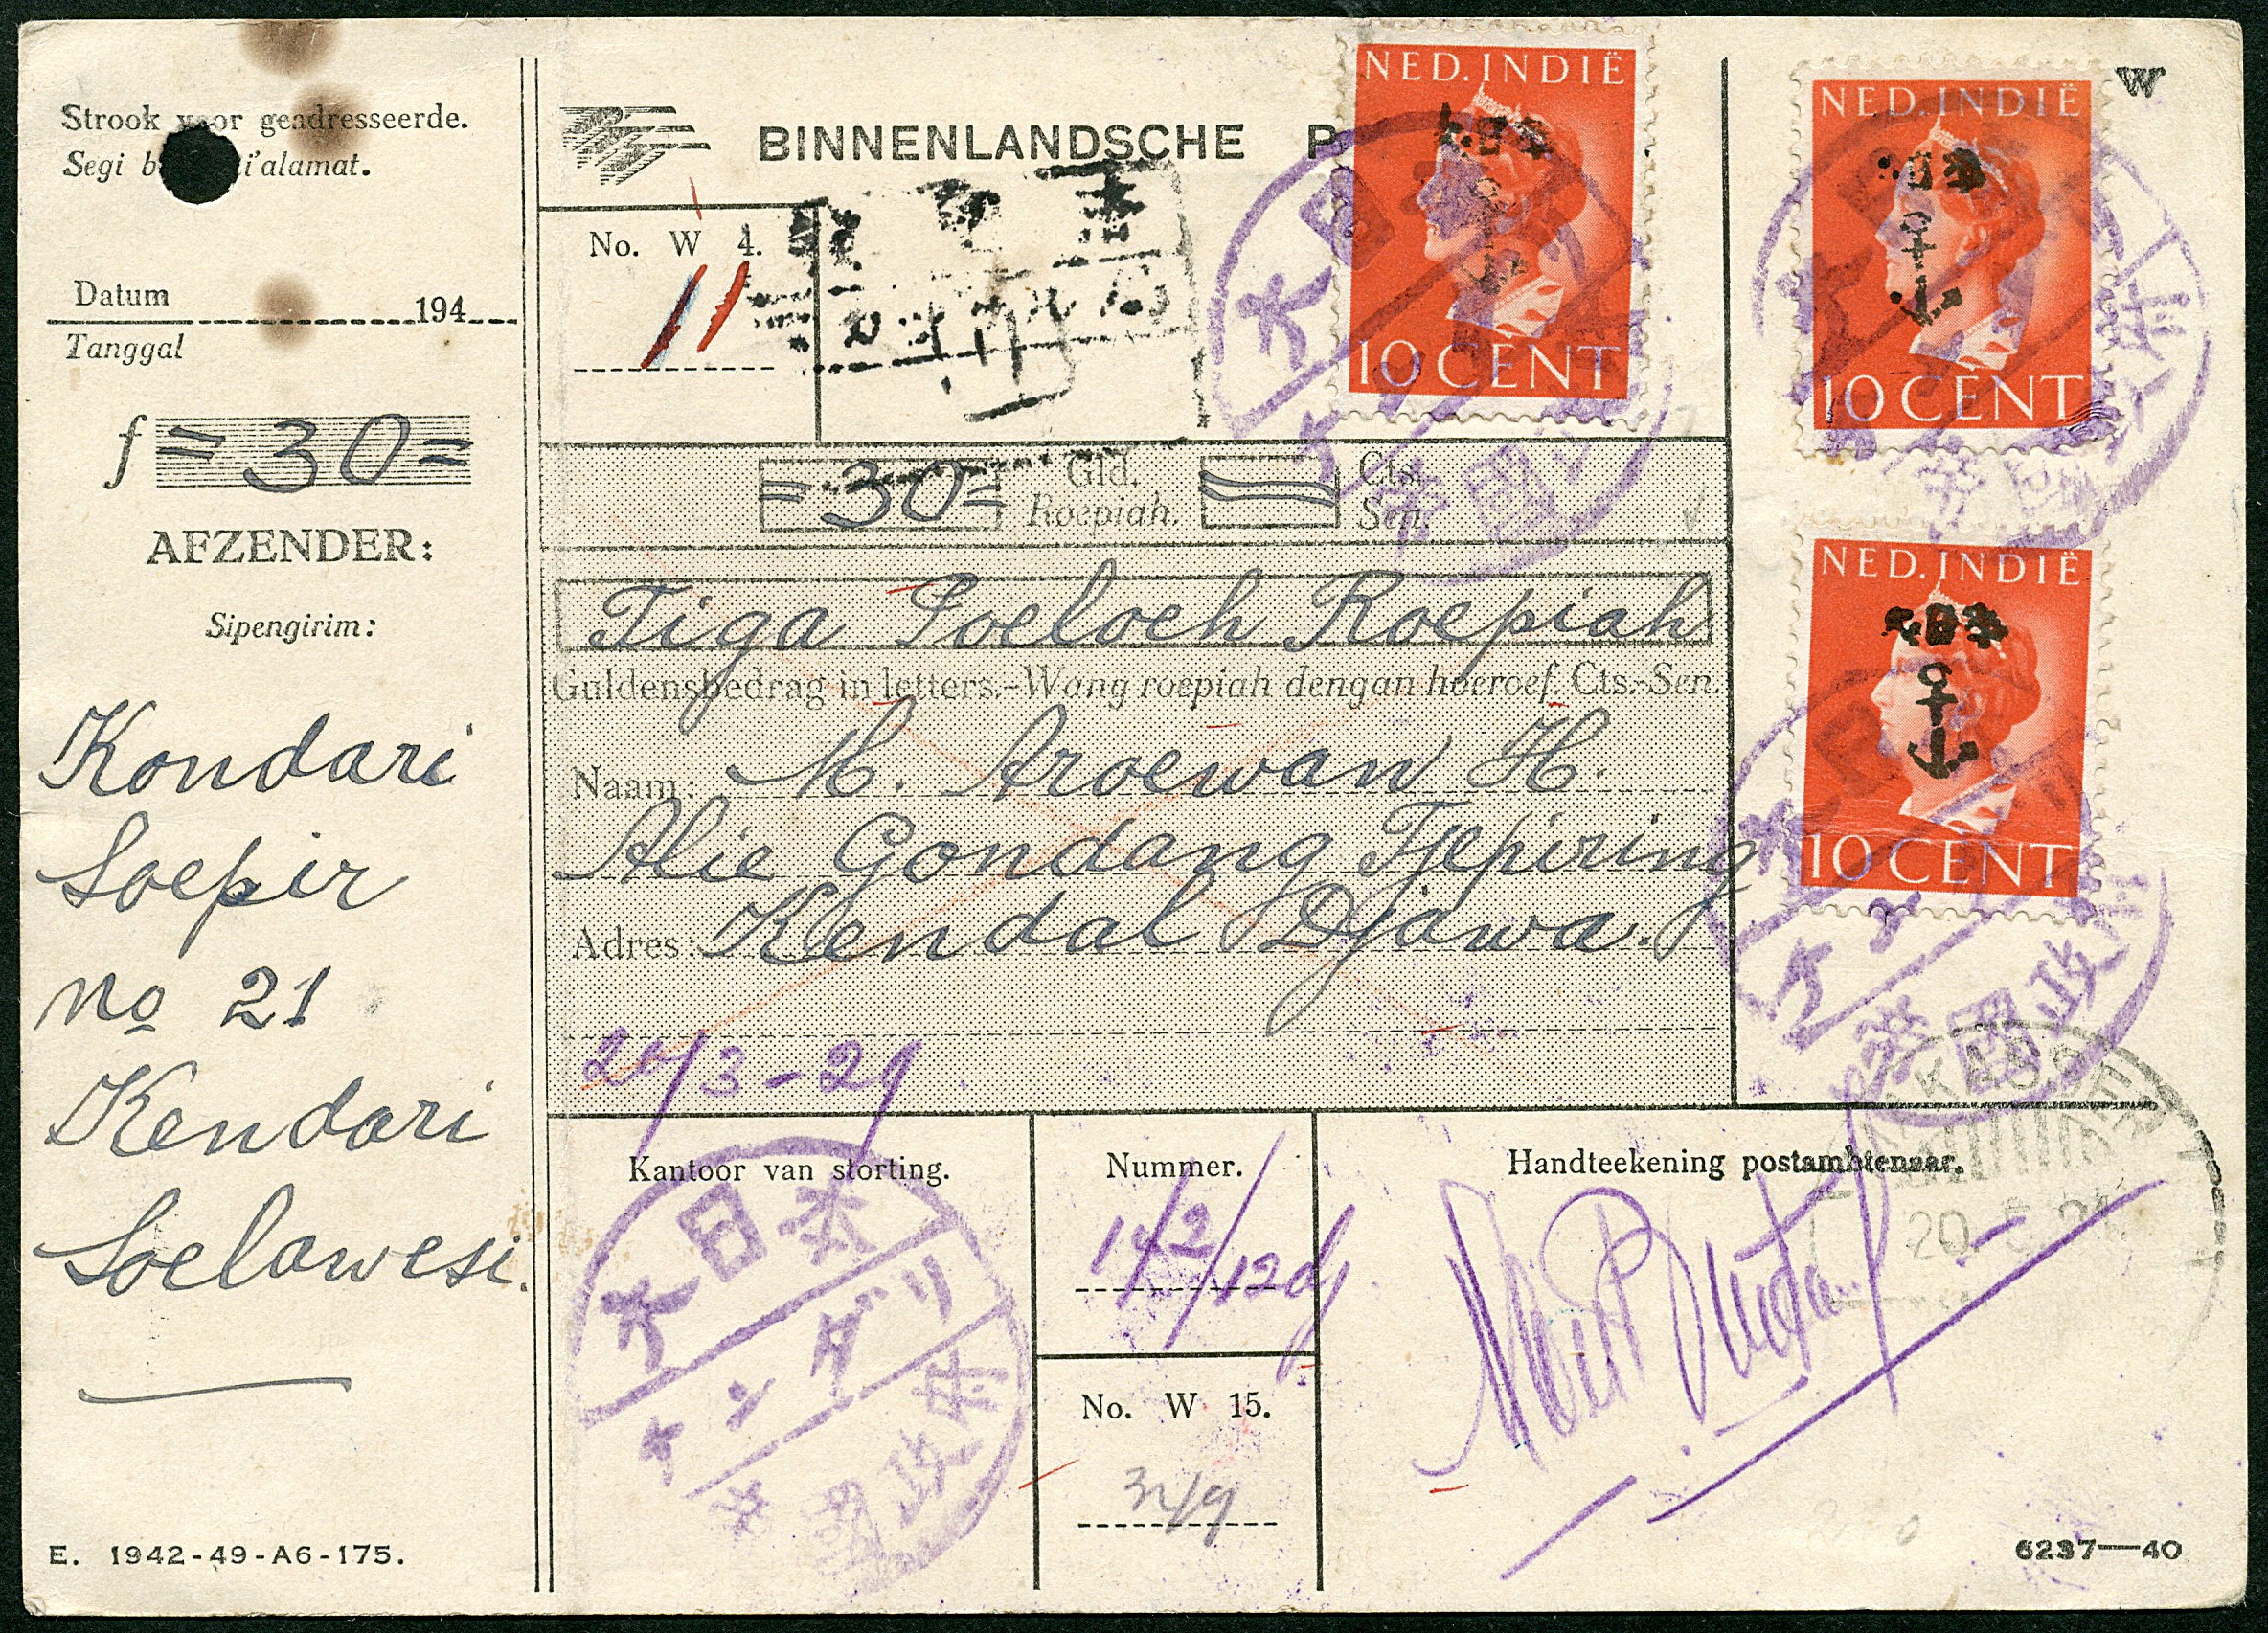 Strook voor geadresseerde.
Segi
alamat.
Datum
194
Tanggal
f = 30 =
AFZENDER:
Sipengirim:
Kondari
Soepir
no 21
Kendari
Soelawesi.
E. 1942-49-A6-175.
BINNENLANDSCHE P
No. W 4.
11
W
NED. INDIË
10 CENT
NED. INDIË
10 CENT
NED. INDIË
10 CENT
= 30 = Gld. Cts.
Roepiah. Sen.
Tiga Soeloeh Roepiah
Guldensbedrag in letters.-Wang roepiah dengan hoeroef. Cts.-Sen.
Naam: M. Aroewan H.
Alie Gondang Tjepiring
Adres: Kendal Djawa.
Kantoor van storting.
大日本
ンダリ
Nummer.
No. W 15.
Handteekening postambtenaar.
6237—40